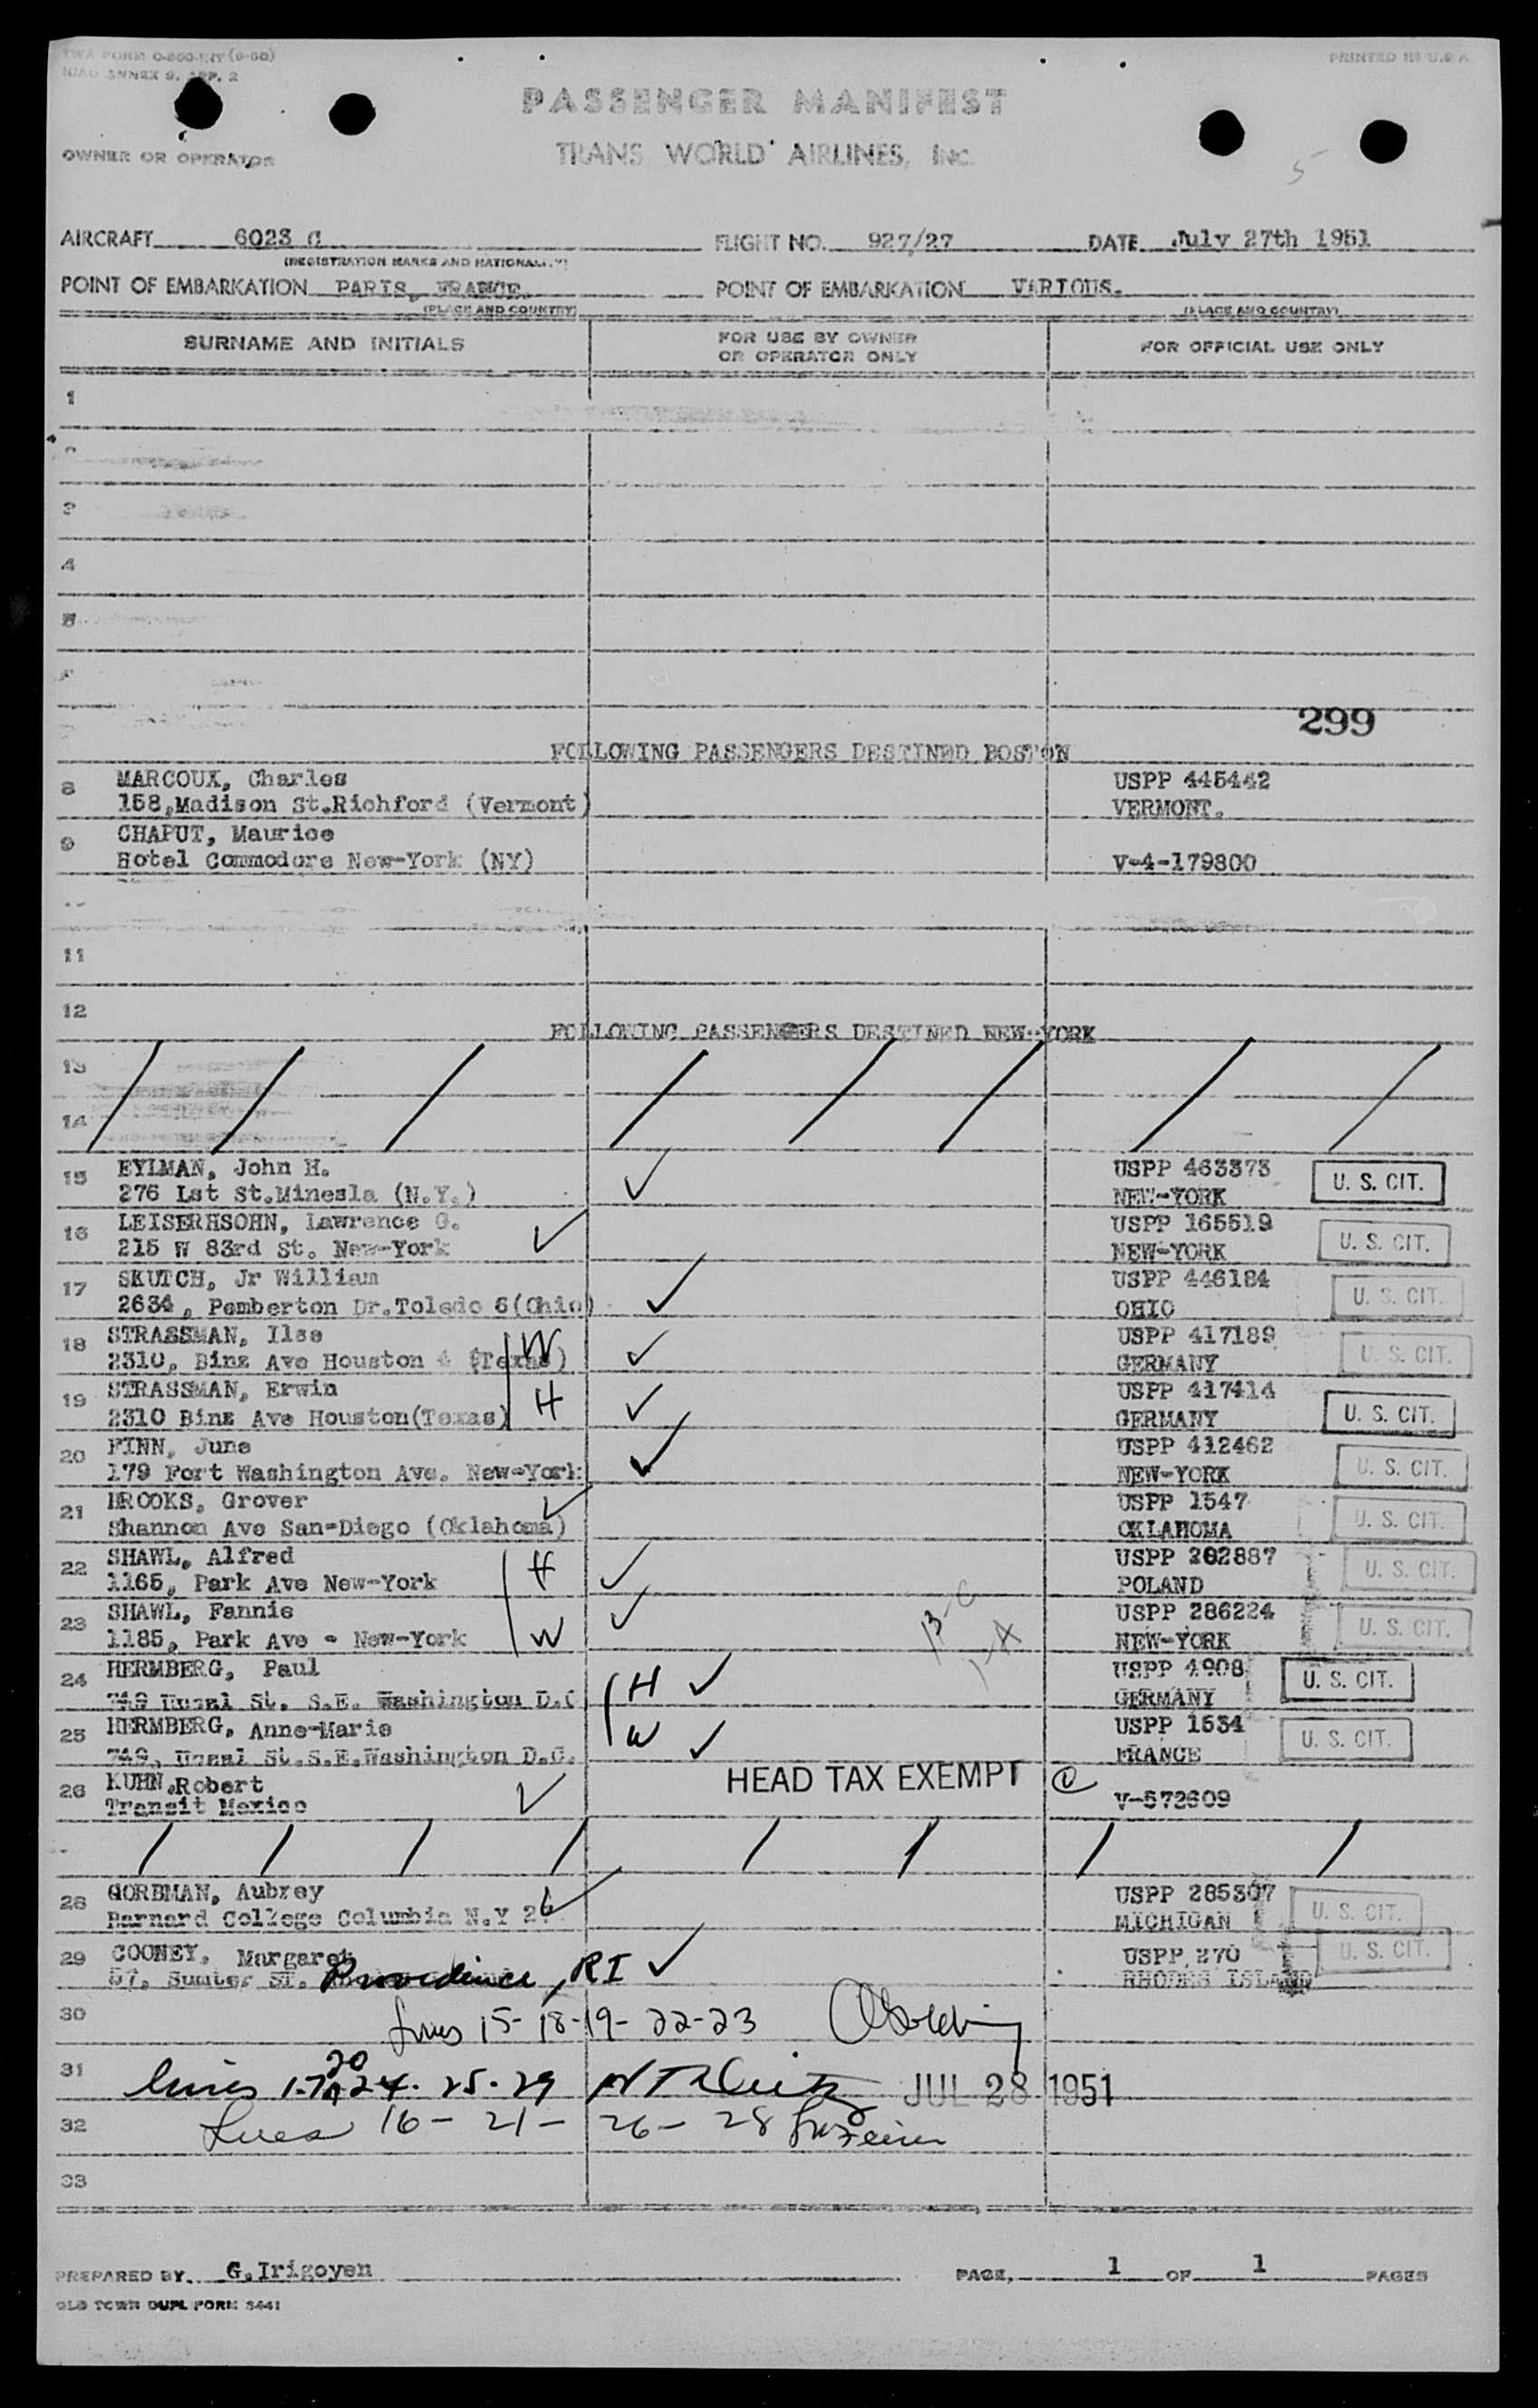 TWA FORM O-800-INT (6-50)
PRINTED IN U.S.A.
ICAO ANNEX 9, APP. 2
PASSENGER MANIFEST
OWNER OR OPERATOR
TRANS WORLD AIRLINES, INC.
5
AIRCRAFT 6023 C FLIGHT NO. 927/27 DATE July 27th 1951
(REGISTRATION MARKS AND NATIONALITY)
POINT OF EMBARKATION PARIS, FRANCE. POINT OF EMBARKATION VARIOUS.
(PLACE AND COUNTRY) (PLACE AND COUNTRY)
SURNAME AND INITIALS FOR USE BY OWNER OR OPERATOR ONLY FOR OFFICIAL USE ONLY
1
2
3
4
5
299
FOLLOWING PASSENGERS DESTINED BOSTON
8 MARCOUX, Charles USPP 445442
158,Madison St.Richford (Vermont) VERMONT.
9 CHAPUT, Maurice
Hotel Commodore New-York (NY) V-4-179800
11
12
FOLLOWING PASSENGERS DESTINED NEW-YORK
13
14
15 EYLMAN, John H. USPP 463373 U. S. CIT.
276 Lst St.Minesla (N.Y.) NEW-YORK
16 LEISERHSOHN, Lawrence G. USPP 165519 U. S. CIT.
215 W 83rd St. New-York NEW-YORK
17 SKUTCH, Jr William USPP 446184 U. S. CIT.
2634, Pemberton Dr.Toledo 6(Ohio) OHIO
18 STRASSMAN, Ilse W USPP 417189 U. S. CIT.
2310, Binz Ave Houston 4 (Texas) GERMANY
19 STRASSMAN, Erwin H USPP 417414 U. S. CIT.
2310 Binz Ave Houston(Texas) GERMANY
20 FINN, June USPP 412462 U. S. CIT.
179 Fort Washington Ave. New-York NEW-YORK
21 BROOKS, Grover USPP 1547 U. S. CIT.
Shannon Ave San-Diego (Oklahoma) OKLAHOMA
22 SHAWL, Alfred H USPP 282887 U. S. CIT.
1165, Park Ave New-York POLAND
23 SHAWL, Fannie W 13-C USPP 286224 U. S. CIT.
1185, Park Ave - New-York 1-A NEW-YORK
24 HERMBERG, Paul H USPP 4908 U. S. CIT.
St. S.E. Washington D.C GERMANY
25 HERMBERG, Anne-Marie W USPP 1534 U. S. CIT.
St.S.E.Washington D.C. FRANCE
26 KUHN,Robert HEAD TAX EXEMPT
Transit Mexico V-572609
28 GORBMAN, Aubrey USPP 285307 U. S. CIT.
Barnard College Columbia N.Y 26 MICHIGAN
29 COONEY, Margaret USPP 270 U. S. CIT.
57, Sumter St. Providence, RI RHODES ISLAND
30 Lines 15-18-19-22-23
31 lines 17 20 24. 25. 29 JUL 28 1951
32 Lines 16- 21- 26- 28
33
PREPARED BY G.Irigoyen PAGE, 1 OF 1 PAGES
OLD TOWN DUPL FORM 5441